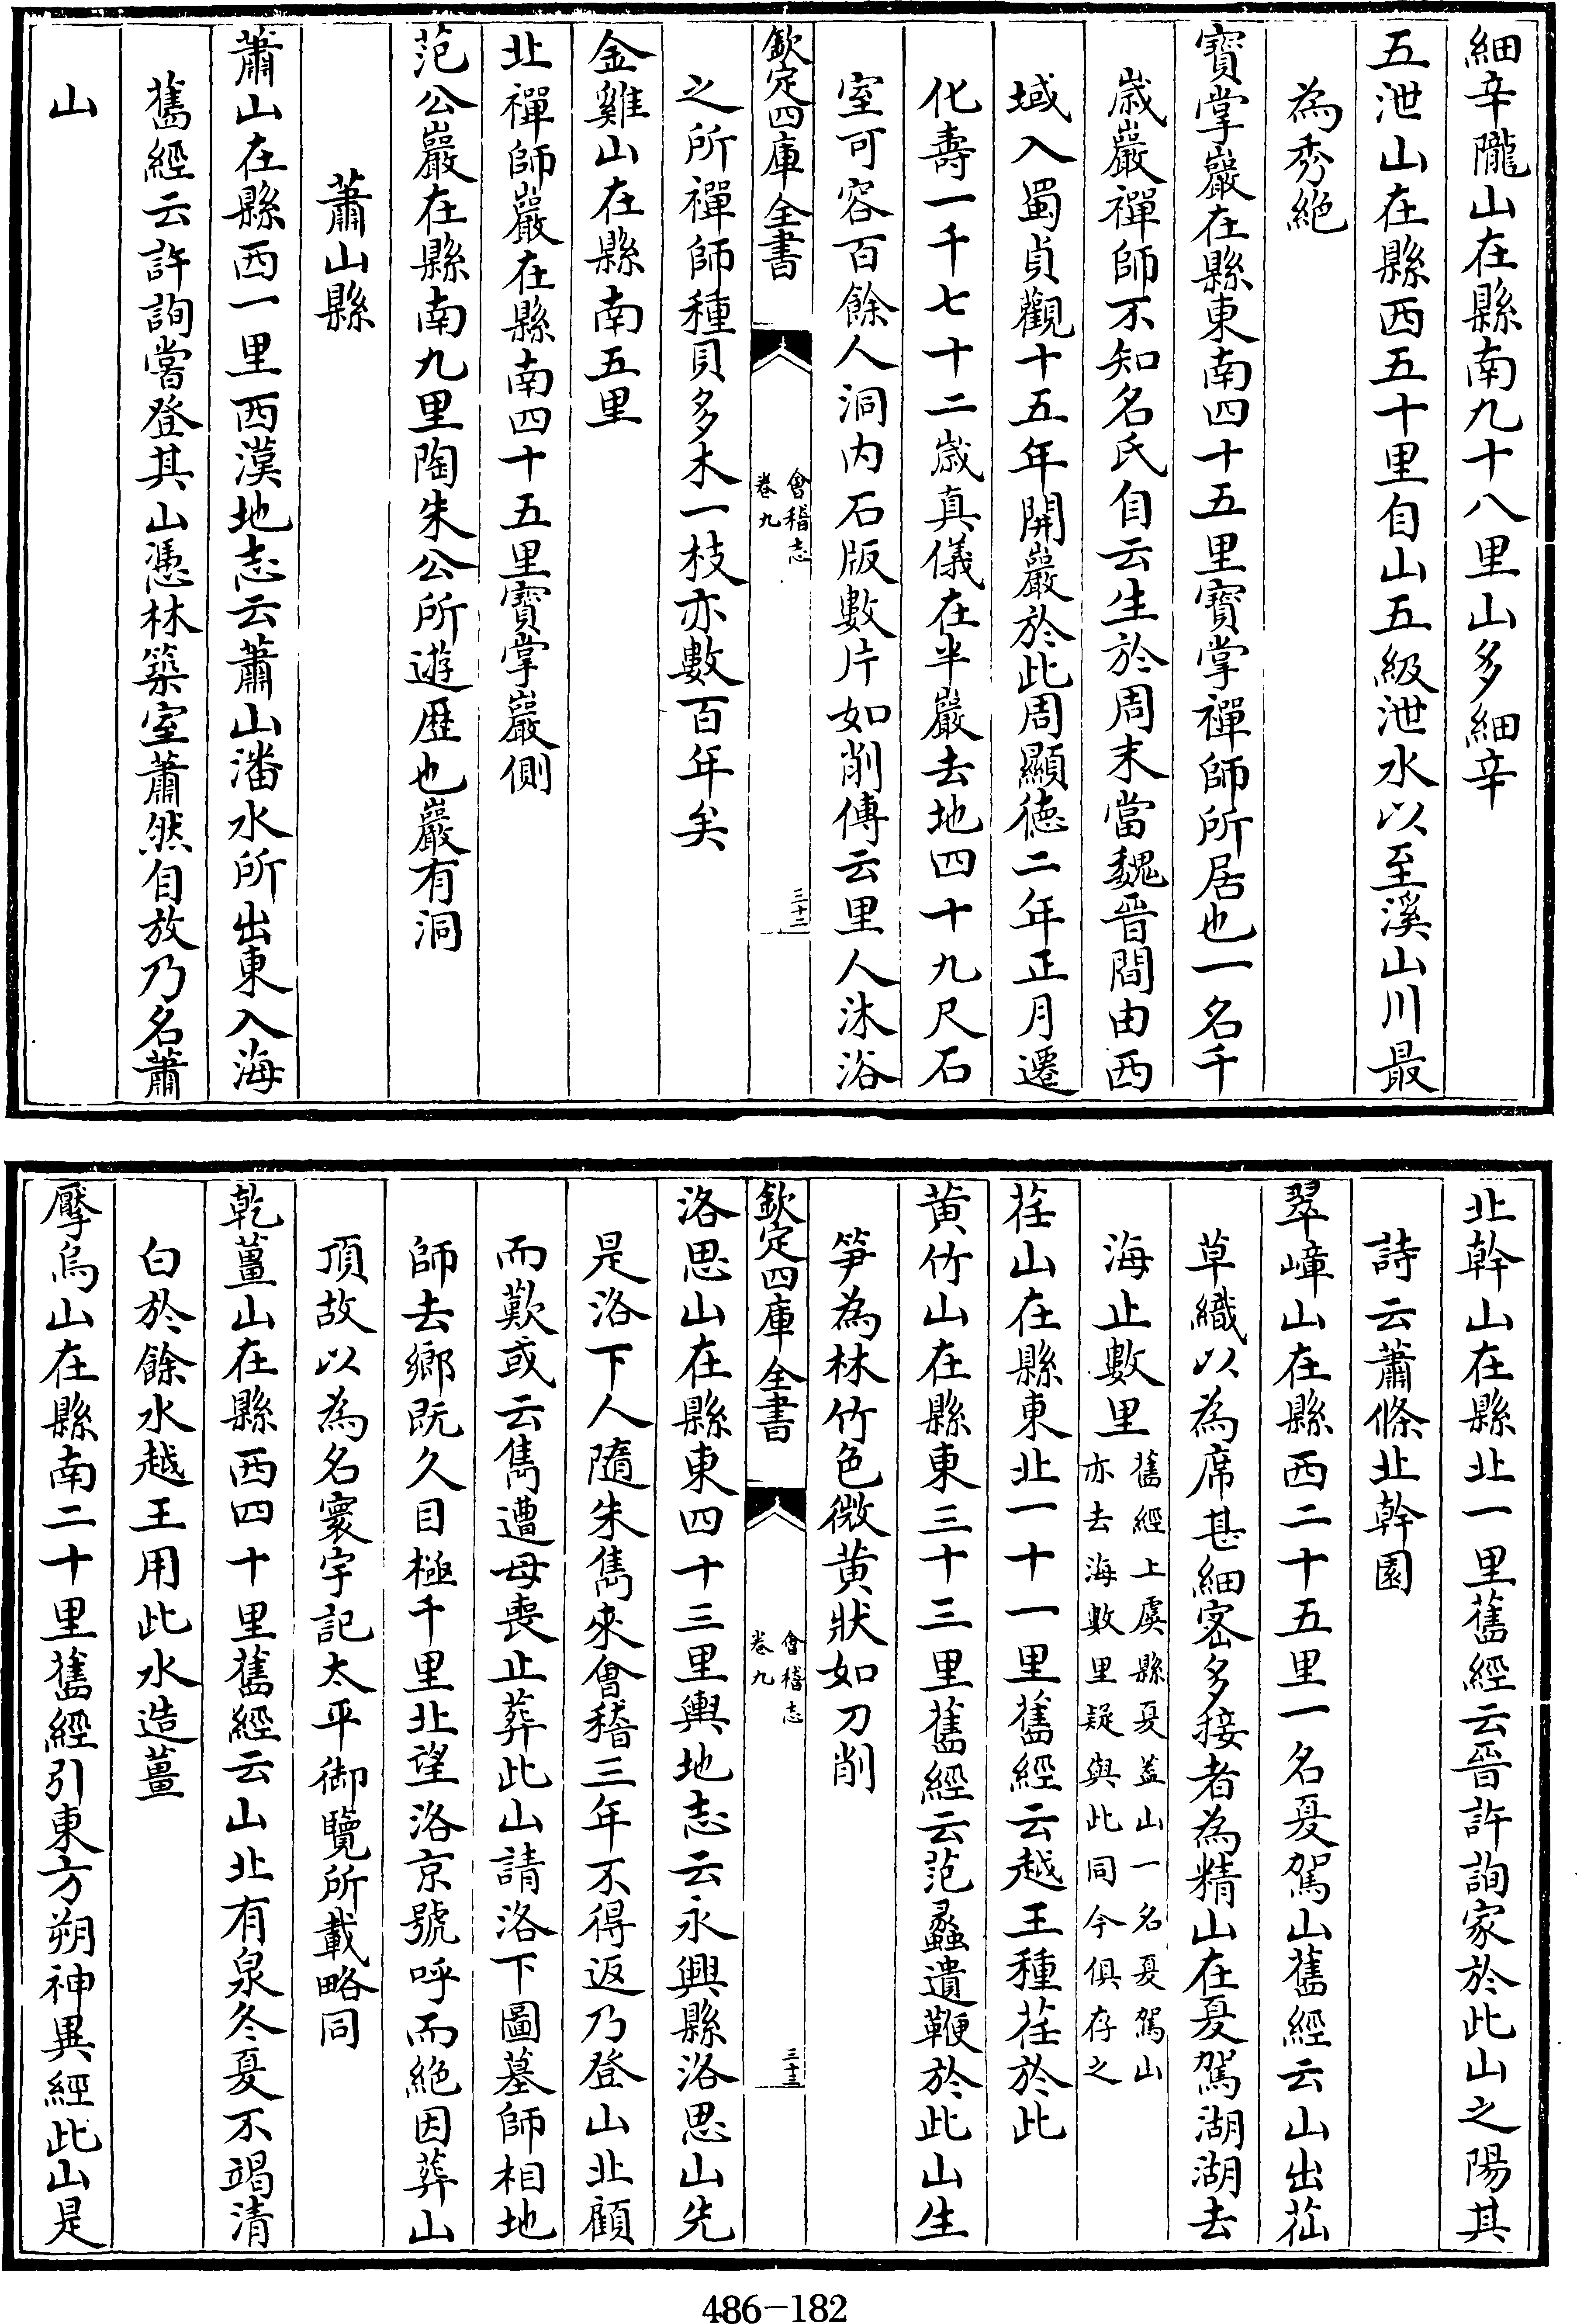 細辛隴山在縣南九十八里山多細辛
五泄山在縣西五十里自山五級泄水以至溪山川最
為秀絶
寳掌巖在縣東南四十五里寳掌禪師所居也一名千
歳巖禪師不知名氏自云生於周末當魏晉間由西
域入蜀貞觀十五年開巖於此周顯徳二年正月遷
化壽一千七十二歳真儀在半巖去地四十九尺石
室可容百餘人洞内石版數片如削傳云里人沐浴
欽定四庫全書
會稽志
卷九
三十二
之所禪師種貝多木一枝亦數百年矣
金雞山在縣南五里
北禪師巖在縣南四十五里寳掌巖側
范公巖在縣南九里陶朱公所遊歴也巖有洞
蕭山縣
蕭山在縣西一里西漢地志云蕭山潘水所出東入海
舊經云許詢嘗登其山憑林築室蕭然自放乃名蕭
山
北幹山在縣北一里舊經云晉許詢家於此山之陽其
詩云蕭條北幹園
翠嶂山在縣西二十五里一名夏駕山舊經云山出蓲
草織以為席甚細宻多接者為精山在夏駕湖湖去
海止數里舊經上虞縣夏盖山一名夏駕山
亦去海數里疑與此同今俱存之
荏山在縣東北一十一里舊經云越王種荏於此
黄竹山在縣東三十三里舊經云范蠡遺鞭於此山生
笋為林竹色微黄狀如刀削
欽定四庫全書
會稽志
卷九
三十三
洛思山在縣東四十三里輿地志云永興縣洛思山先
是洛下人隨朱雋來會稽三年不得返乃登山北顧
而歎或云雋遭母喪止葬此山請洛下圖墓師相地
師去鄉既久目極千里北望洛京號呼而絶因葬山
頂故以為名寰宇記太平御覽所載略同
乾薑山在縣西四十里舊經云山北有泉冬夏不竭清
白於餘水越王用此水造薑
壓烏山在縣南二十里舊經引東方朔神異經此山是
486-182